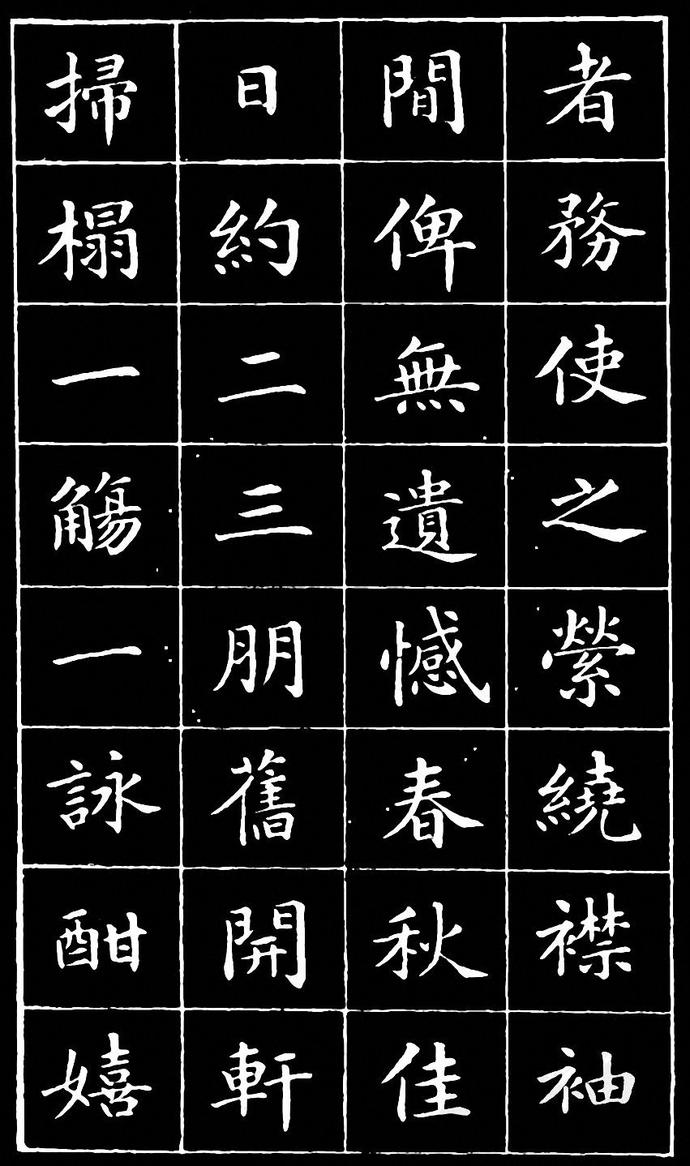 者務使之縈繞襟袖
間俾無遺憾春秋佳
日約二三朋舊開軒
掃榻一觴一詠酣嬉